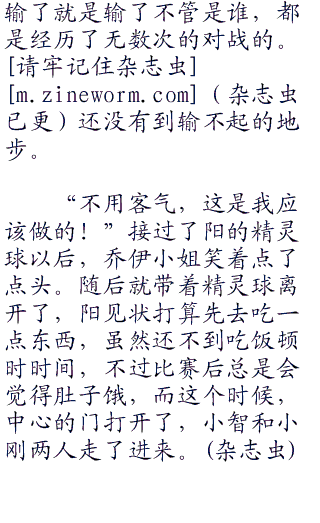 输了就是输了不管是谁，都
是经历了无数次的对战的。
[请牢记住杂志虫]
[m.zineworm.com]（杂志虫
已更）还没有到输不起的地
步。
“不用客气，这是我应
该做的！”接过了阳的精灵
球以后，乔伊小姐笑着点了
点头。随后就带着精灵球离
开了，阳见状打算先去吃一
点东西，虽然还不到吃饭顿
时时间，不过比赛后总是会
觉得肚子饿，而这个时候，
中心的门打开了，小智和小
刚两人走了进来。(杂志虫)